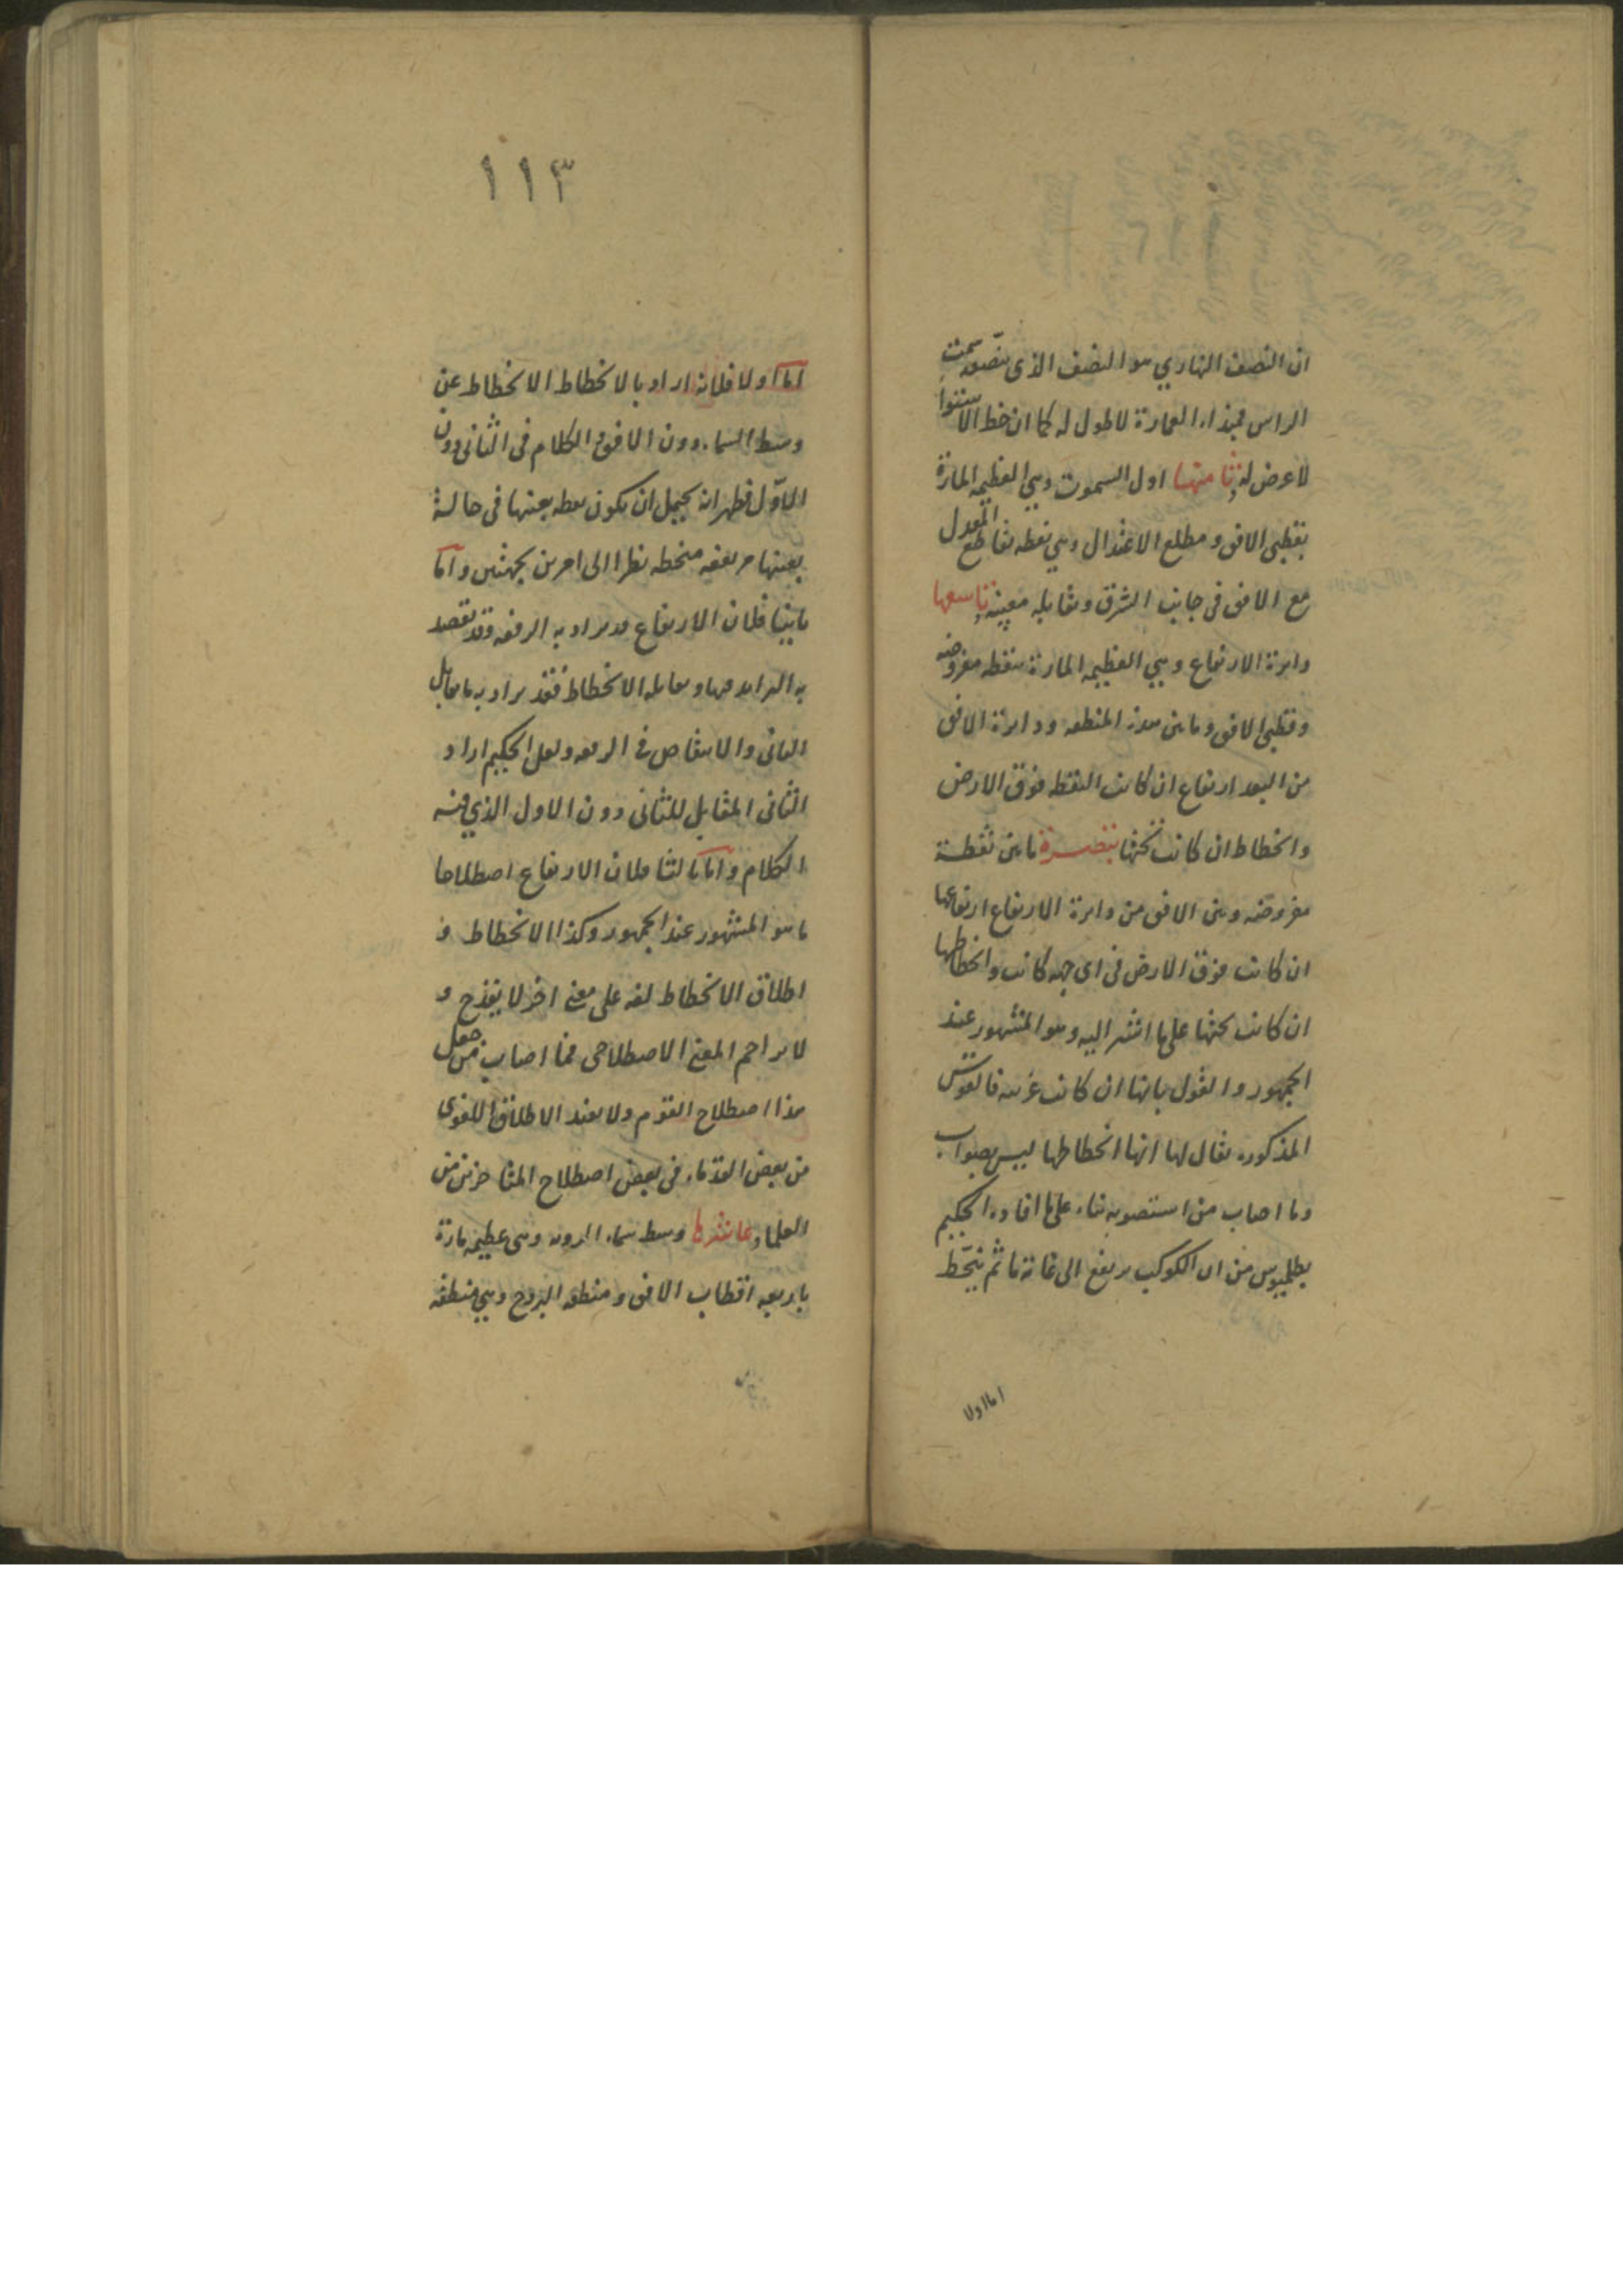 ان النصف النهاري هو النصف الذى ينصفه سمت
الراس فمبداء العمارة لا طول له كما ان خط الاستوا
لا عرض له وثامنها اول السموت وهي العظيمه المارة
بقطبى الافق و مطلع الاعتدال وهي نقطه تقاطع المعدل
مع الافق فى جانب الشرق ومقابله مغيبه وتاسعها
دايرة الارتفاع وهي العظيمه المارة بنقطه مفروضه
وقطبى الافق وما بين هذه النقطه ودايرة الافق
من البعد ارتفاع ان كانت النقطه فوق الارض
وانحطاط ان كانت تحتها تبصرة ما بين نقطة
مفروضه وبين الافق من دايرة الارتفاع ارتفاعها
ان كانت فوق الارض فى اى جهه كانت وانحطاطها
ان كانت تحتها على ما اشير اليه وهو المشهور عند
الجمهور والقول بانها ان كانت غربيه فالقوس
المذكوره يقال لها انها انحطاطها ليس بصواب
وما اصاب من استصوبه بناء على ما افاده الحكيم
بطلميوس من ان الكوكب يرتفع الى غاية ما ثم ينحط
اما اولا
١١٣
اما اولا فلانه اراد بالانحطاط الانحطاط عن
وسط السماء دون الافق والكلام فى الثانى دون
الاول فظهر انه يحتمل ان يكون نقطه بعينها فى حالة
بعينها مرتفعه منحطه نظرا الى امرين بجهتين واما
ثانيا فلان الارتفاع قد يراد به الرفعه وقد يقصد
به التزايد فيها ويقابله الانحطاط فقد يراد به ما يقابل
الثانى والانتقاص فى الرفعه ولعل الحكيم اراد
الثانى المقابل للثانى دون الاول الذي فيه
الكلام واما ثالثا فلان الارتفاع اصطلاحا
ما هو المشهور عند الجمهور وكذا الانحطاط و
اطلاق الانحطاط لغه على معنى اخر لا يقدح و
لا يزاحم المعنى الاصطلاحى فما اصاب من جعل
هذا اصطلاح القوم ولا يعتد الاطلاق اللغوى
من بعض القدماء فى بعض اصطلاح المتاخرين من
العلما وعاشرها وسط سماء الرويه وهى عظيمه مارة
باربعه اقطاب الافق و منطقه البروج وهي منطقه